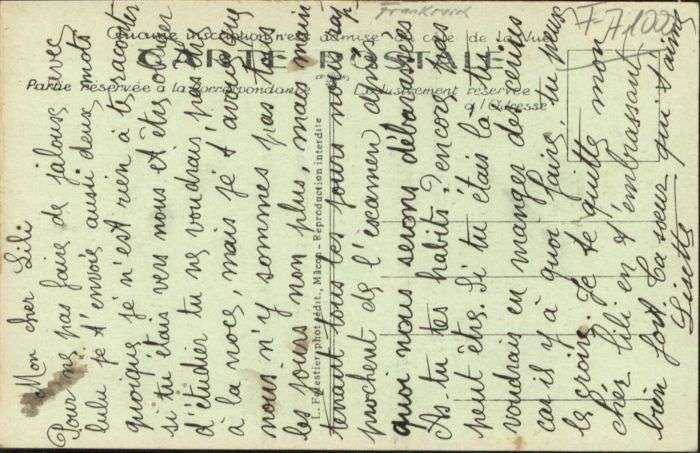 Frankreich
F
A 1002
Aucune inscription n'est admise du côté de la Vue
CARTE POSTALE
Partie réservée à la correspondance
Exclusivement réservée
à l'Adresse
L. Ferestier, phot.-édit., Mâcon - Reproduction interdite
Mon cher Lili
Pour ne pas faire de jaloux avec
lulu je t'envois aussi deux mots
quoique je n'est rien à te raconter
si tu étais vers nous et être obliger
d'étudier tu ne voudrais, pas être
à la noce, mais je t'avoue que
nous n'y sommes pas tous
les jours non plus, mais main
tenant tous les jours nous rap
prochent de l'examen dans
quoi nous serons débarrassées
As-tu tes habits? encore pas
peut être. Si tu étais là tu
voudrais en manger des
car il y à quoi faire, tu peux
le croire. Je te quitte mon
cher Lili en t'embrassant
bien fort ta sœur qui t'aime